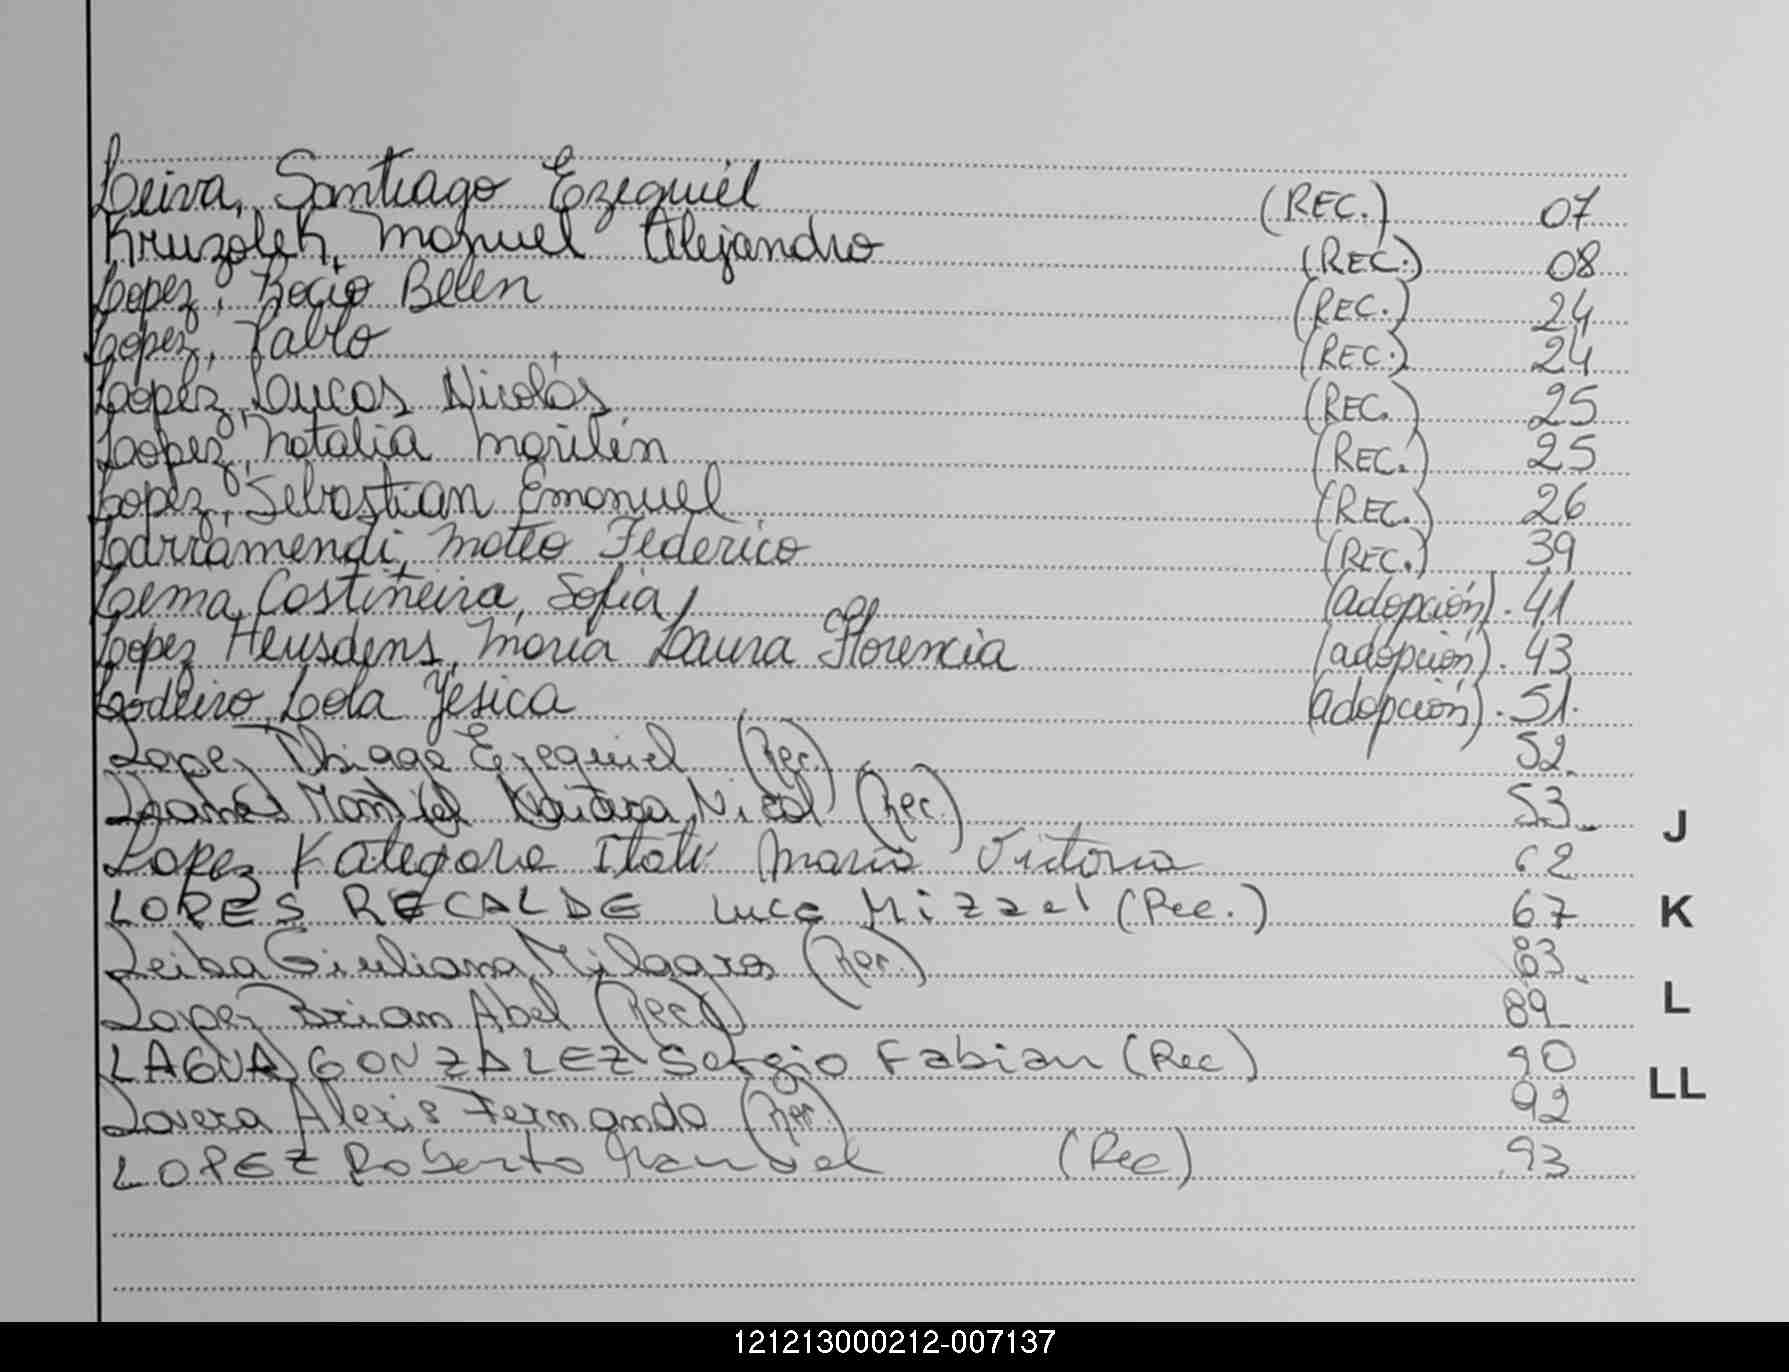 Leiva, Santiago Ezequiel (REC.) 07
Kruzolek, Manuel Alejandro (REC.) 08
Lopez, Rocio Belen (REC.) 24
Lopez, Pablo (REC.) 24
Lopez, Lucas Nicolás (REC.) 25
Lopez, Natalia Marilén (REC.) 25
Lopez, Sebastian Emanuel (REC.) 26
Larramendi, Mateo Federico (REC.) 39
Lema Costiñeira, Sofia (adopción). 41
Lopez Heusdens, Maria Laura Florencia (adopción). 43
Lodeiro Lola Yesica (adopción). 51.
Lopez Thiago Ezequiel (Rec.) 52.
Montiel Nicol (Rec.) 53
J
Lopez Itati Maria Victoria 62
LOPES RECALDE Luca (Rec.) 67
K
Leiba Giuliana Milagros (Rec.) 83
Lopez Brian Abel (Rec.) 89
L
GONZALEZ Sergio Fabian (Rec) 90
LL
Alexis Fernando (Rec) 92
LOPEZ Roberto Manuel (Rec) 93
121213000212-007137